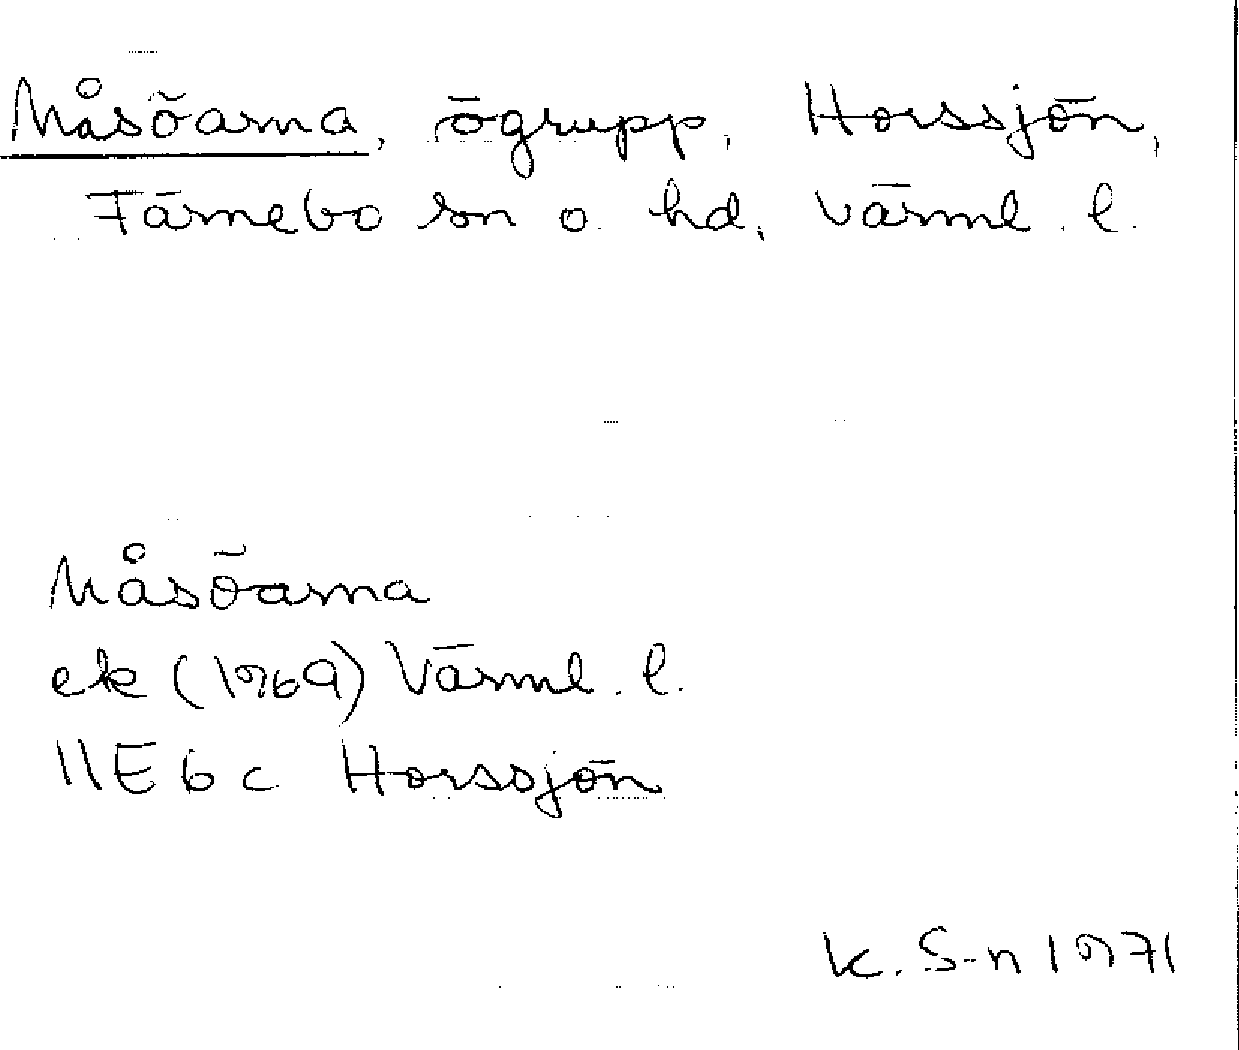 Måsöarna, ögrupp, Horssjön,
Färnebo sn o. hd, Värml. l.
Måsöarna
ek (1969) Värml. l.
11E 6c Horssjön
K. S-n 1971